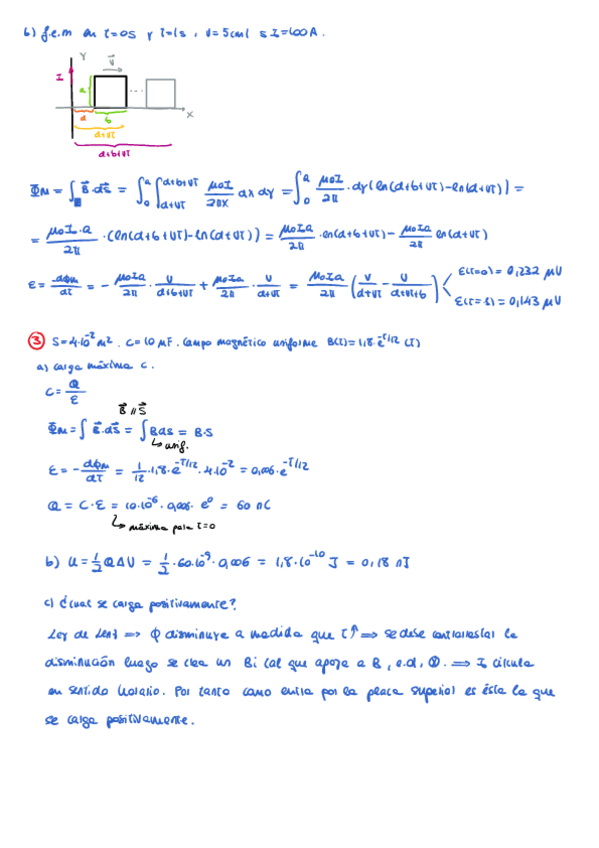 b) f.e.m en t=0s y t=1s, v=5cm/s I=100A.
Y
v⃗
I
a
X
d
b
d+vt
d+b+vt
Φm = ∫ B⃗·dS⃗ = ∫₀ᵃ ∫_{d+vt}^{d+b+vt} μ₀I/2πx dx dy = ∫₀ᵃ μ₀I/2π · dy (ln(d+b+vt)-ln(d+vt)) =
= μ₀I·a/2π · (ln(d+b+vt)-ln(d+vt)) = μ₀Ia/2π · ln(d+b+vt) - μ₀Ia/2π ln(d+vt)
ε = dΦm/dt = - μ₀Ia/2π · v/d+b+vt + μ₀Ia/2π · v/d+vt = μ₀Ia/2π (v/d+vt - v/d+vt+b) ε(t=0) = 0,232 μV
ε(t=1) = 0,143 μV
③ S=4·10⁻² m². C=10 μF. Campo magnético uniforme B(t)=1,8·e^{-t/12} (T)
a) carga máxima C.
C = Q/ε
B⃗ // S⃗
Φm = ∫ B⃗·dS⃗ = ∫ B dS = B·S
↳ unif.
ε = - dΦm/dt = 1/12 · 1,8·e^{-t/12} · 4·10⁻² = 0,006·e^{-t/12}
Q = C·ε = 10·10⁻⁶ · 0,006 · e⁰ = 60 nC
↳ máxima para t=0
b) U = 1/2 QΔV = 1/2 · 60·10⁻⁹ · 0,006 = 1,8·10⁻¹⁰ J = 0,18 nJ
c) ¿Cuál se carga positivamente?
Ley de Lenz => ϕ disminuye a medida que t↑ => se debe contrarrestar la
disminución luego se crea un Bi tal que apoya a B, e.d, => I circula
en sentido horario. Por tanto como entra por la placa superior es ésta la que
se carga positivamente.